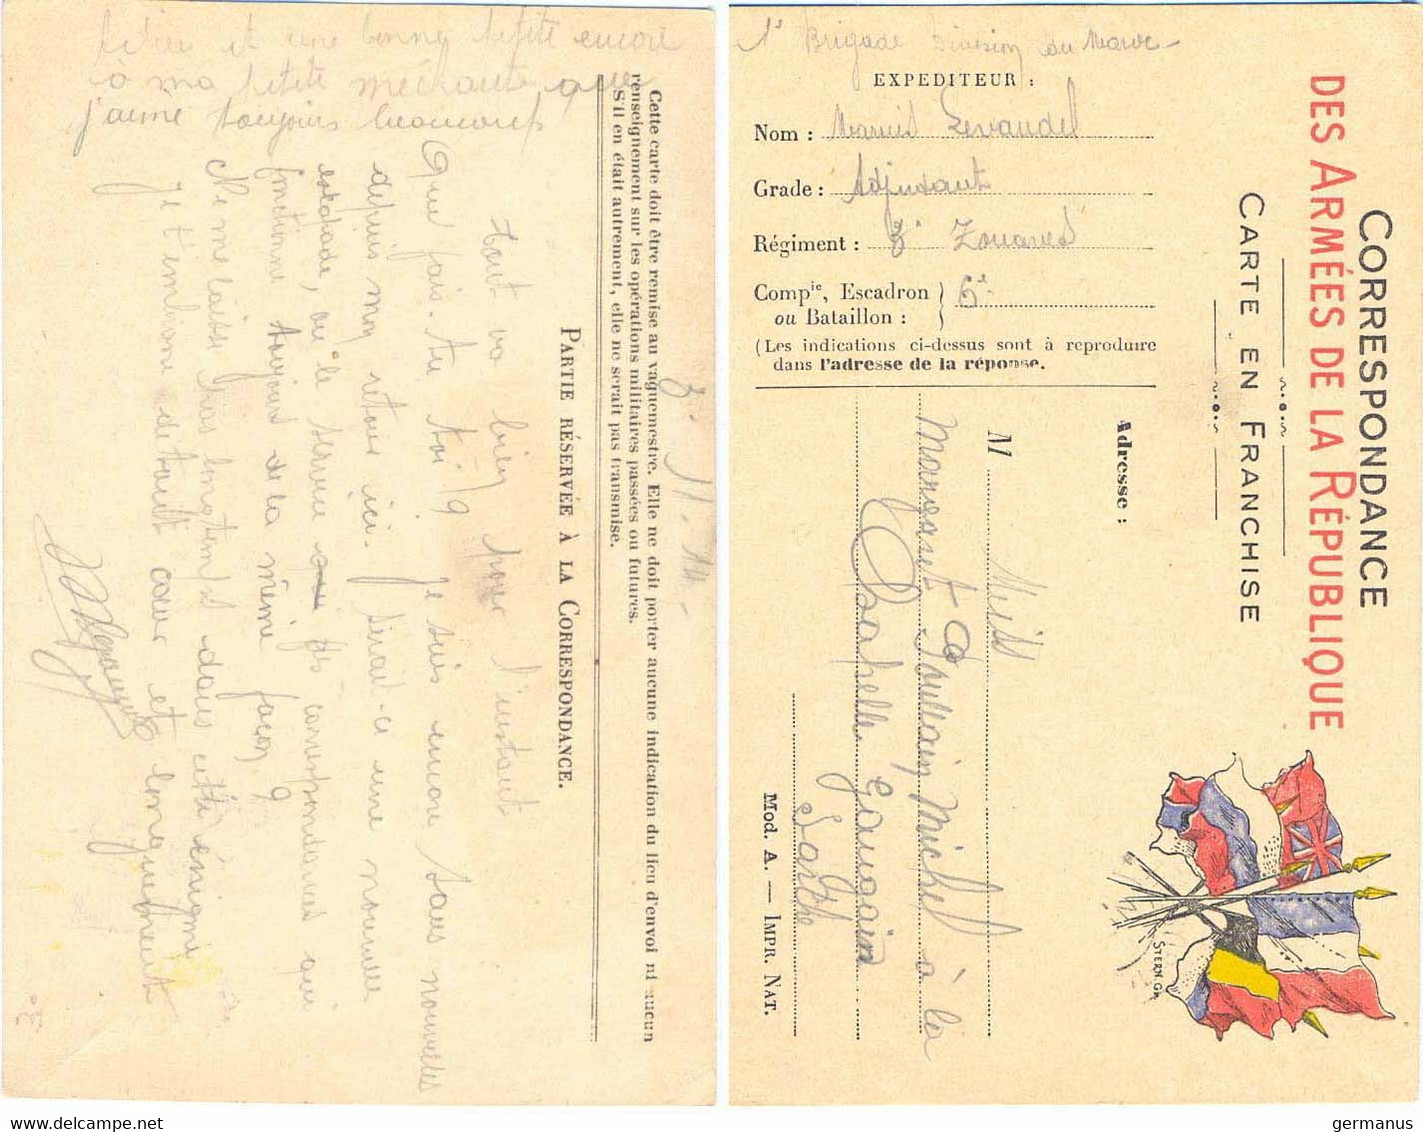 CORRESPONDANCE
DES ARMÉES DE LA RÉPUBLIQUE
CARTE EN FRANCHISE
1e Brigade Division du Maroc
EXPEDITEUR :
Nom : Levaudel
Grade : Adjudant
Régiment : 8e Zouaves
Compie, Escadron
ou Bataillon : } 6e
(Les indications ci-dessus sont à reproduire
dans l'adresse de la réponse.
Adresse :
M
Michel à la
Chapelle Gaugain
Sarthe
Mod. A. — IMPR. NAT.
STERN. GR.
Cette carte doit être remise au vaguemestre. Elle ne doit porter aucune indication du lieu d'envoi ni aucun
renseignement sur les opérations militaires passées ou futures.
S'il en était autrement, elle ne serait pas transmise.
PARTIE RÉSERVÉE À LA CORRESPONDANCE.
tout va bien pour l'instant
Que fais-tu toi ? Je suis encore sans nouvelles
depuis mon retour ici. Serait-ce une nouvelle
estocade, ou le service des correspondances qui
fonctionne toujours de la même façon ?
Ne me laisse pas longtemps dans cette énigme
Je t'embrasse de tout cœur et longuement
et une bonne petite encore
à ma petite méchante que
j'aime toujours beaucoup
germanus